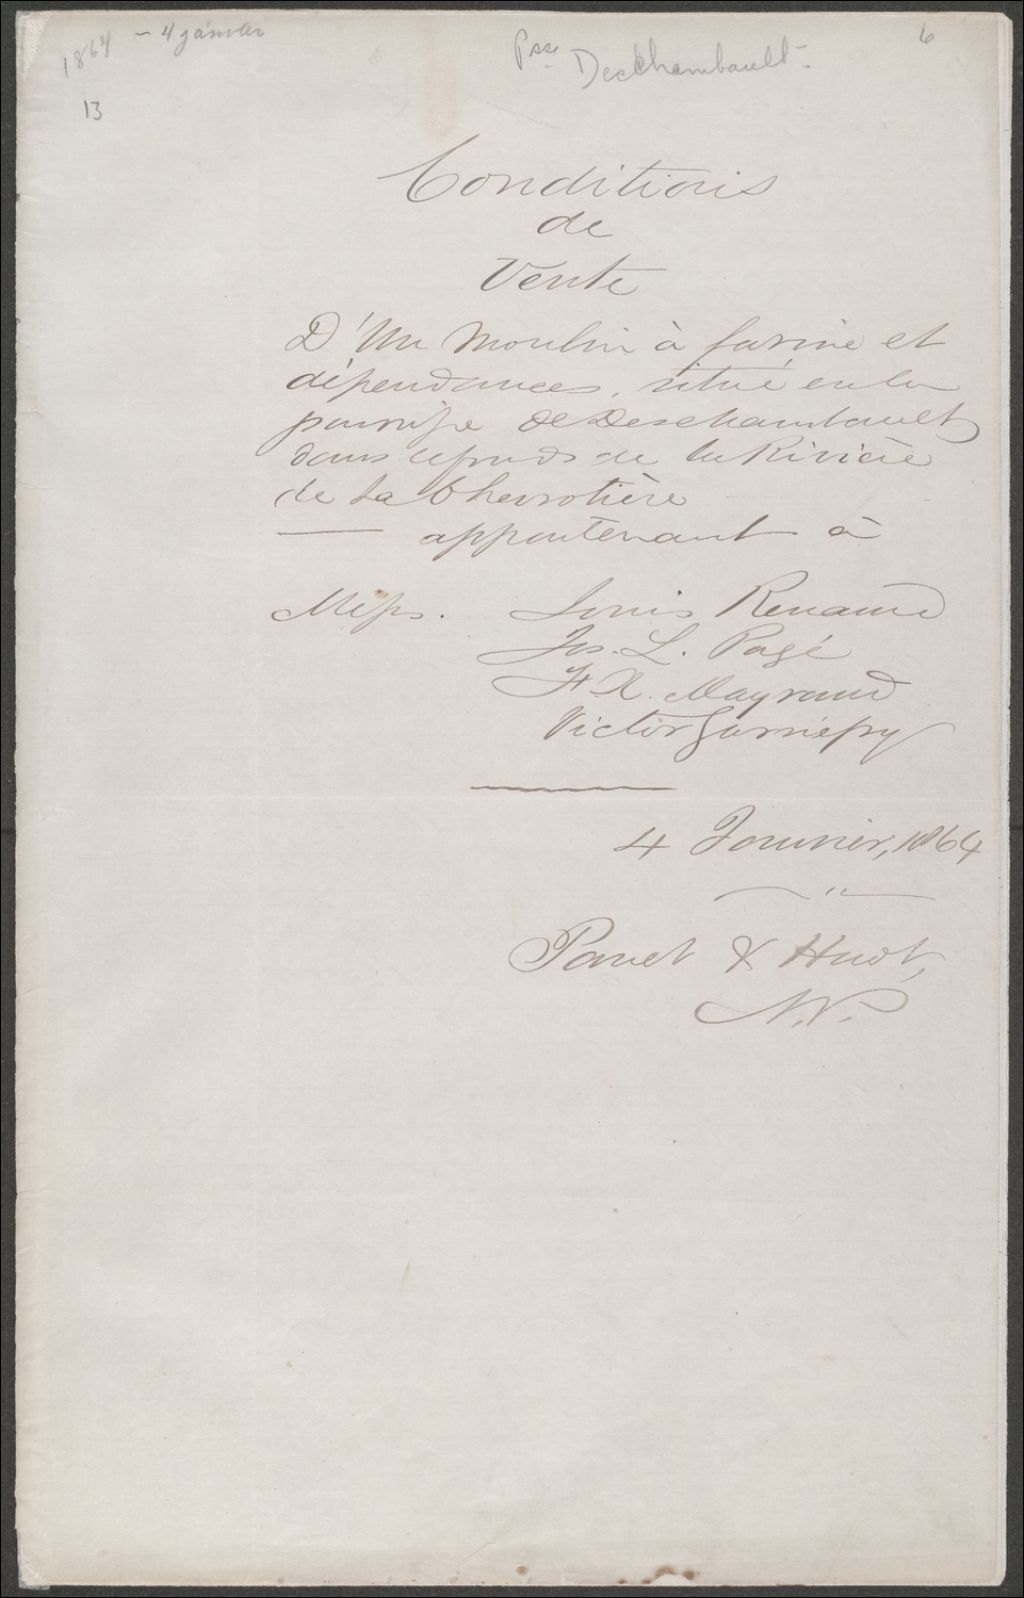 1864 - 4 janvier
Psse Deschambault -
6
13
Conditions
de
Vente
D'Un Moulin à farine et
dépendances, situé en la
paroisse de Deschambault
dans le fonds de la Rivière
de La Chevrotière
— appartenant à
Messrs. Louis Renaud
Jos. L. Pagé
F. X. Mayrand
Victor Gariépy
4 Janvier, 1864
"
Panet & Huot,
N.N.